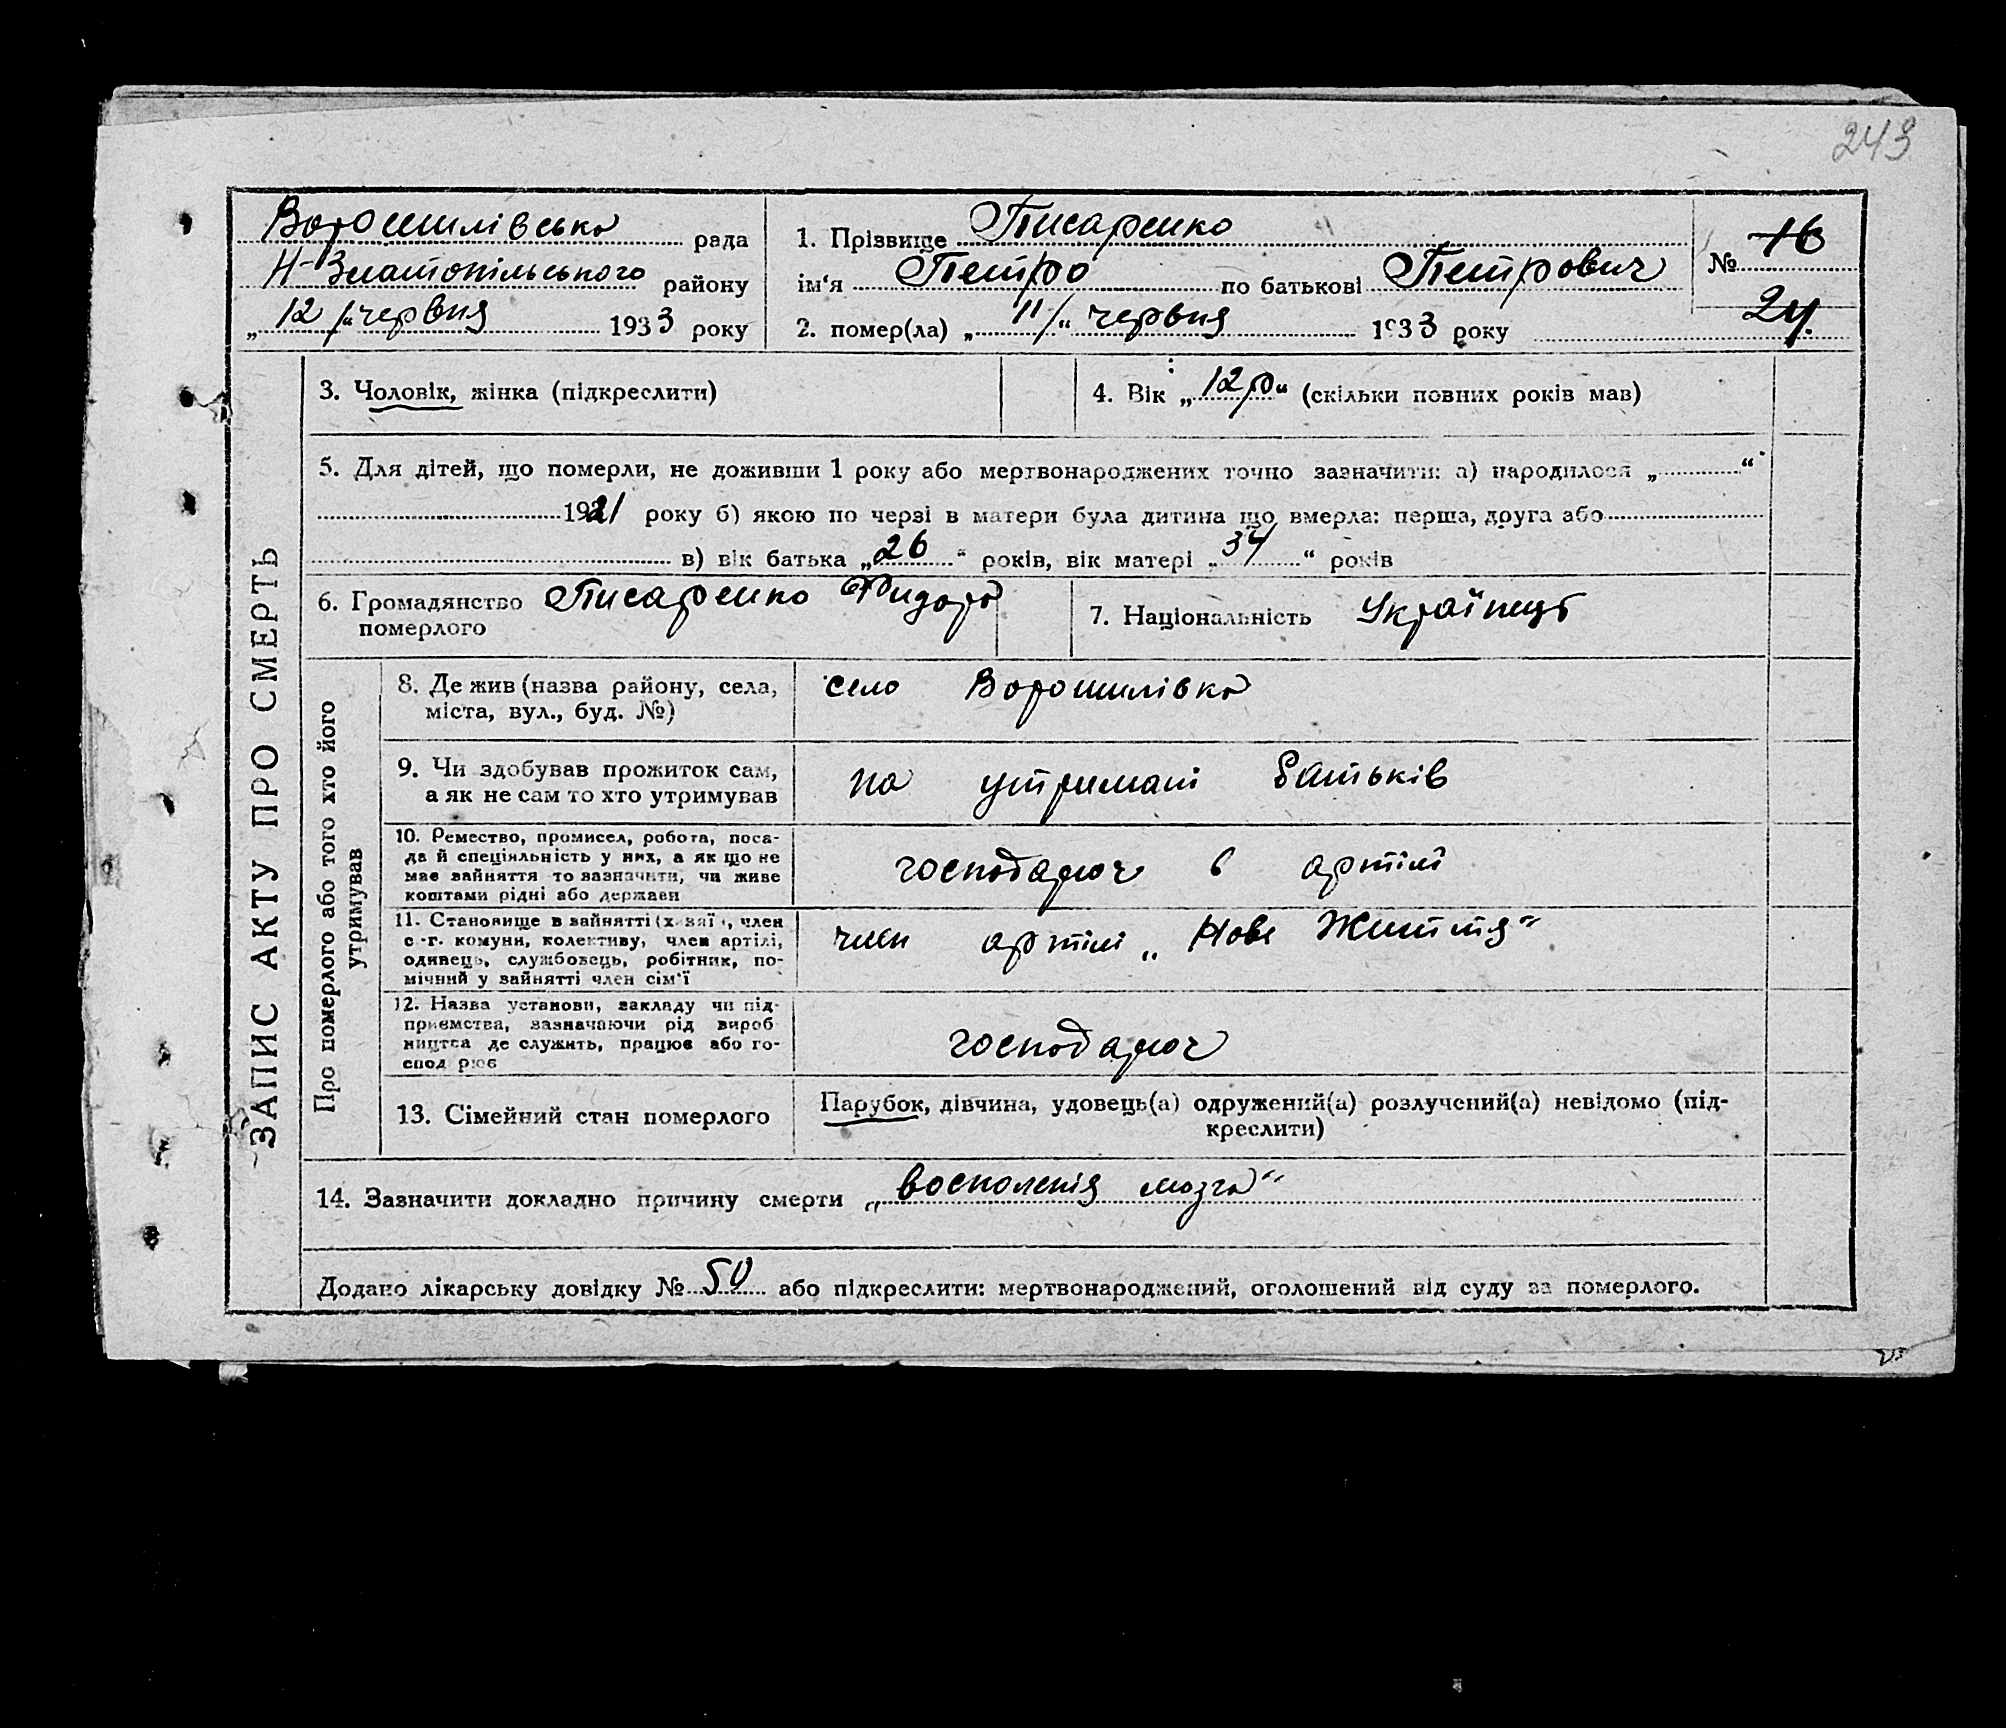 243
Ворошилівська рада
Н-Златопільського району
„12“ червня 1933 року
1. Прізвище Писаренко
ім‘я Петро по батькові Петрович
2. помер(ла) „11“ червня 1933 року
№ 16
24.
ЗАПИС АКТУ ПРО СМЕРТЬ
3. Чоловік, жінка (підкреслити)
4. Вік „12 р“ (скільки повних років мав)
5. Для дітей, що померли, не доживши 1 року або мертвонароджених точно зазначити: а) народилося „ “
1921 року б) якою по черзі в матери була дитина що вмерла: перша, друга або
в) вік батька „26“ років, вік матері „34“ років
6. Громадянство Писаренко Фидора
померлого
7. Національність Українець
Про померлого або того хто його
утримував
8. Де жив (назва району, села,
міста, вул., буд. №)
село Ворошилівка
9. Чи здобував прожиток сам,
а як не сам то хто утримував
на утримані батьків
10. Ремество, промисел, робота, поса-
да й спеціяльність у них, а як що не
має зайняття то зазначити, чи живе
коштами рідні або держави
господарюч в артілі
11. Становище в зайнятті (х зяї , член
с -г. комуни, колективу, член артілі,
одинець, службовець, робітник, по-
мічний у зайнятті член сім‘ї
член артілі „Нове Життя“
12. Назва установи, закладу чи під-
приємства, зазначаючи рід вироб
ництва де служить, працює або го-
спод рює
господарюч
13. Сімейний стан померлого
Парубок, дівчина, удовець(а) одружений(а) розлучений(а) невідомо (під-
креслити)
14. Зазначити докладно причину смерти „восполенія мозга“
Додано лікарську довідку № 50 або підкреслити: мертвонароджений, оголошений від суду за померлого.